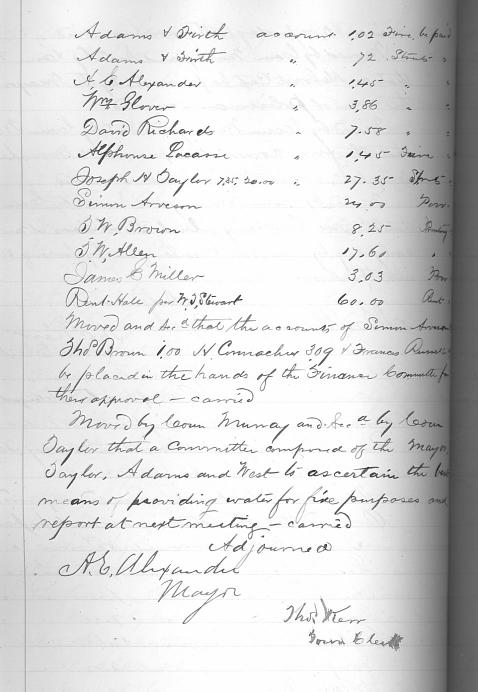 Adams & Firth account 1.02 Fire be paid
Adams & Firth " 72 Streets "
A. E. Alexander " 1.45 " "
Wm Glover " 3.86 " "
David Richards " 7.58 " "
Alphonse Lacasse " 1.45 Fire "
Joseph H Taylor 7.35, 20.00 " 27.35 Streets "
Simon Arveson 24.00 Poor
T. W. Brown 8.25 Printing
T. W. Allen 17.60 " "
James C Miller 3.03 Poor
Rent Hall for W. J. Stewart 60.00 Rent
Moved and Secd that the accounts of Simon Arveson
Thos Brown 1.00 H Connacher 3.09 & Francis
be placed in the hands of the Finance Committee for
their approval – carried
Moved by Coun Murray and Secd by Coun
Taylor that a Committee composed of the Mayor,
Taylor, Adams and West to ascertain the best
means of providing water for fire purposes and
report at next meeting – carried
Adjourned
A. E. Alexander
Mayor
Thos Kerr
Town Clerk